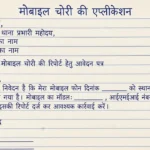 मोबाइल चोरी की एप्लीकेशन
थाना प्रभारी महोदय,
का नाम
का नाम
मोबाइल चोरी की रिपोर्ट हेतु आवेदन पत्र
निवेदन है कि मेरा मोबाइल फोन दिनांक को स्थान
गया है। मोबाइल का मॉडल: , आईएमईआई नंबर
इसकी रिपोर्ट दर्ज कर आवश्यक कार्रवाई करें।